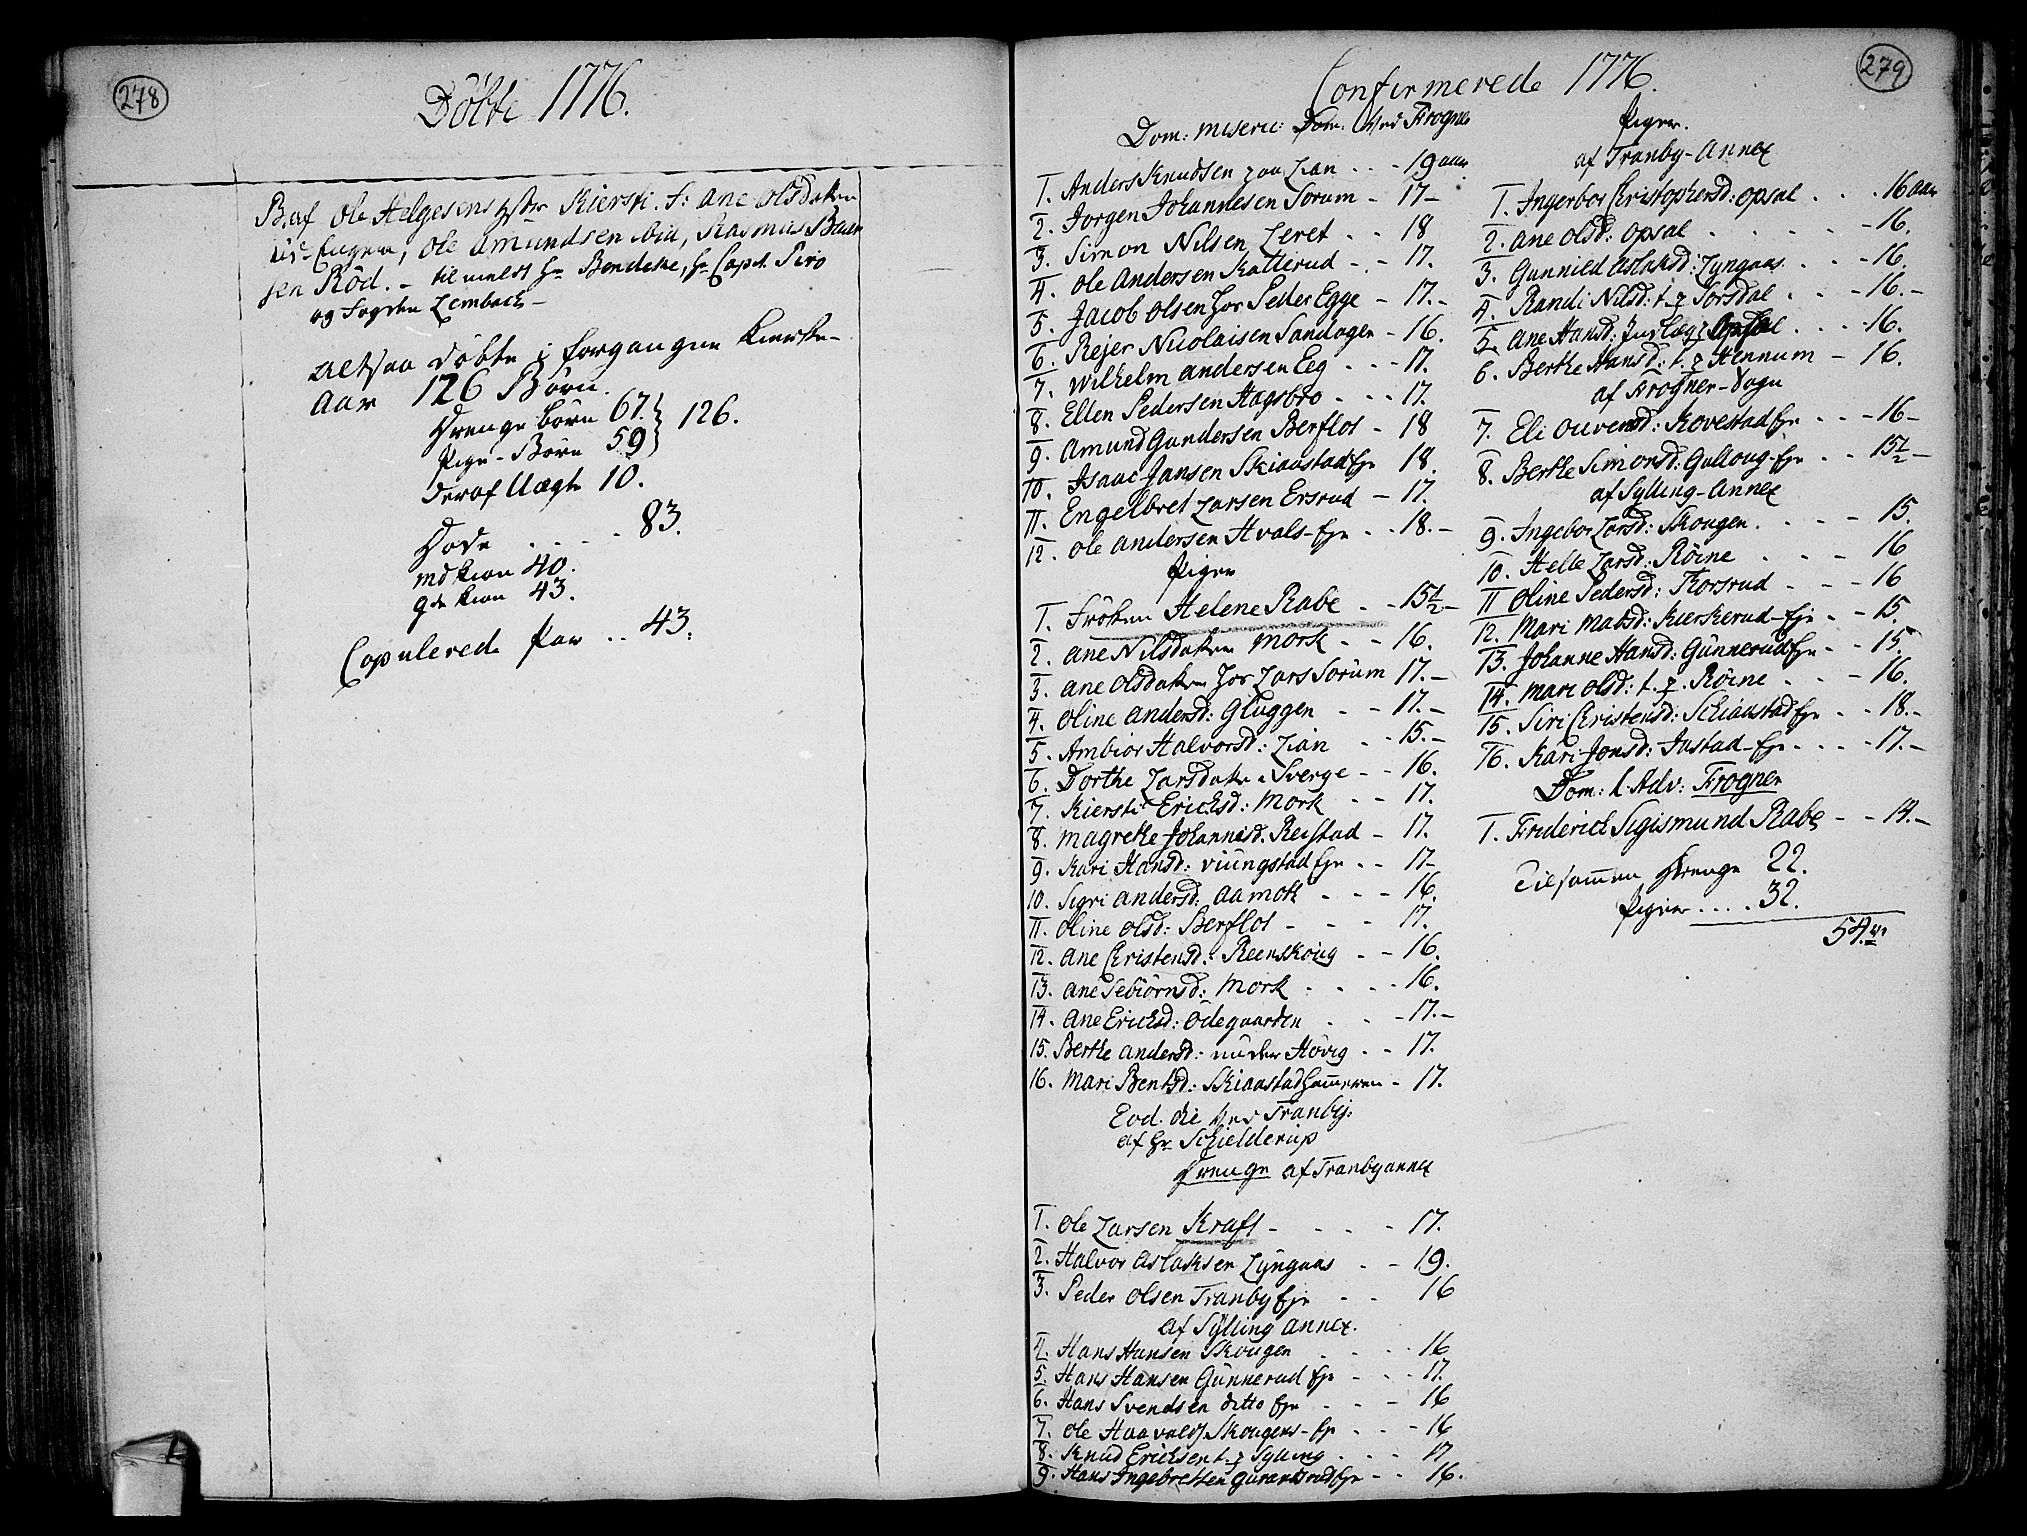 278
Döbte 1776.
B. af Ole Helgesens Kiersti. F: Ane Olsdatter
Engen, Ole Amundsen ibid, Rasmus
sen Röd. - tilmeldt Hr Bendeke, Hr Capt. Piro
og Fogden Lembach -
Altsaa döbte i forgangne Kirke-
Aar 126 Börn.
Drenge börn 67. } 126.
Pige-Börn 59
deraf Uægte 10.
Döde . . . . . 83.
md kiön 40.
qde kiön 43.
Copulerede Par . . 43.
279
Confirmerede 1776.
Dom: miseric: Dom. Ved Frogner
1. Anders Knudsen paa Lian . . - 19 aar
2. Jorgen Johannesen Sorum - 17 -
3. Simon Nilsen Leret . . 18
4. Ole Andersen Katterud - . - 17.
5. Jacob Olsen hos Peder Egge - 17. -
6. Rejer Nicolaisen Sandagen - 16.
7. Wilhelm Andersen Eeg . . - 17.
8. Ellen Pedersen Hagsbro . - - 17.
9. Amund Gundersen Berflot - 18
10. Isaac Jansen Skiaastad Eje 18.
11. Engelbret Larsen Ersrud - 17.
12. Ole Andersen Hvals-Eje . . 18. -
Piger
1. Fröken Helene Rabe . . 15 1/2 -
2. Ane Nilsdatter Mork - - 16.
3. Ane Olsdatter hos Lars Sorum 17. -
4. Oline Andersd: Gluggen - - 17. -
5. Ambior Halvorsd: Lian . - 15. -
6. Dorthe Larsdatter Sverge - - 16.
7. Kiersti Ericksd: Mork - - 17.
8. Magrethe Johannesd. Reistad - 17.
9. Kari Hansd: Viungstad Eje . - 17 -
10. Sigri Andersd: Aamodt . - - 16.
11. Oline Olsd: Berflot - - - 17.
12. Ane Christensd: Reenskoug - - 16.
13. Ane Sebiörnsd: Mork . . . . 16.
14. Ane Ericksd: Ödegaarden . . - 17. -
15. Berthe Andersd: under Hövig - - 17.
16. Mari Bentsd: Skiaastad hammeren - 17.
Eod. die Ved Tranbÿ:
af Hr Schielderup
Drenge af Tranby annex
1. Ole Larsen Kraft - - - - 17.
2. Halvor Aslaksen Lÿngaas . - 19.
3. Peder Olsen Tranby Eje . - 16
af Sÿlling Annex.
4. Hans Hansen Skougen . . . . 16
5. Hans Hansen Gunnerud Eje - . . 17.
6. Hans Svendsen ditto Eje . - - 16
7. Ole Haavolds. Skougens-Eje . . - 16
8. Knud Ericksen t. p Sylling . . . . 17
9. Hans Ingebretsen Eje - - 16.
Piger.
af Tranby-Annex
1. Ingerbor Christophersd: Opsal . . . 16 aar
2. Ane Olsd: Opsal . . . . . - 16.
3. Gunnild Aslaksd: Lyngaas . . . - 16.
4. Randi Nilsd: t. p Sorsdal . . . - 16. -
5. Ane Hansd: Opsal . . . - 16.
6. Berthe Hansd: t. p Hennum - 16.
af Frogner-Sogn
7. Eli Ouvensd: Kovestad Eje . . - 16 -
8. Berthe Simonsd: Gulloug-Eje . . 15 1/2 -
af Sylling-Annex
9. Ingebor Larsd: Skougen . . . - 15.
10. Helle Larsd: Röine . - - 16
11 Oline Pedersd: Korsrud - - - 16
12. Mari Madsd: Kierkerud-Eje . - 15.
13. Johanne Hansd: Gunnerud Eje - - 15.
14. Mari Olsd: t. p. Röine . . - 16.
15. Siri Christensd: Schiaastad Eje . - 18. -
16. Kari Jonsd: Jastad-Eje - . . . - 17. -
Dom: 1. Adv: Frogner
1. Friderich Sigismund Rabe - - 14. -
Tilsammen Drenge 22.
Piger . . . . 32.
54.